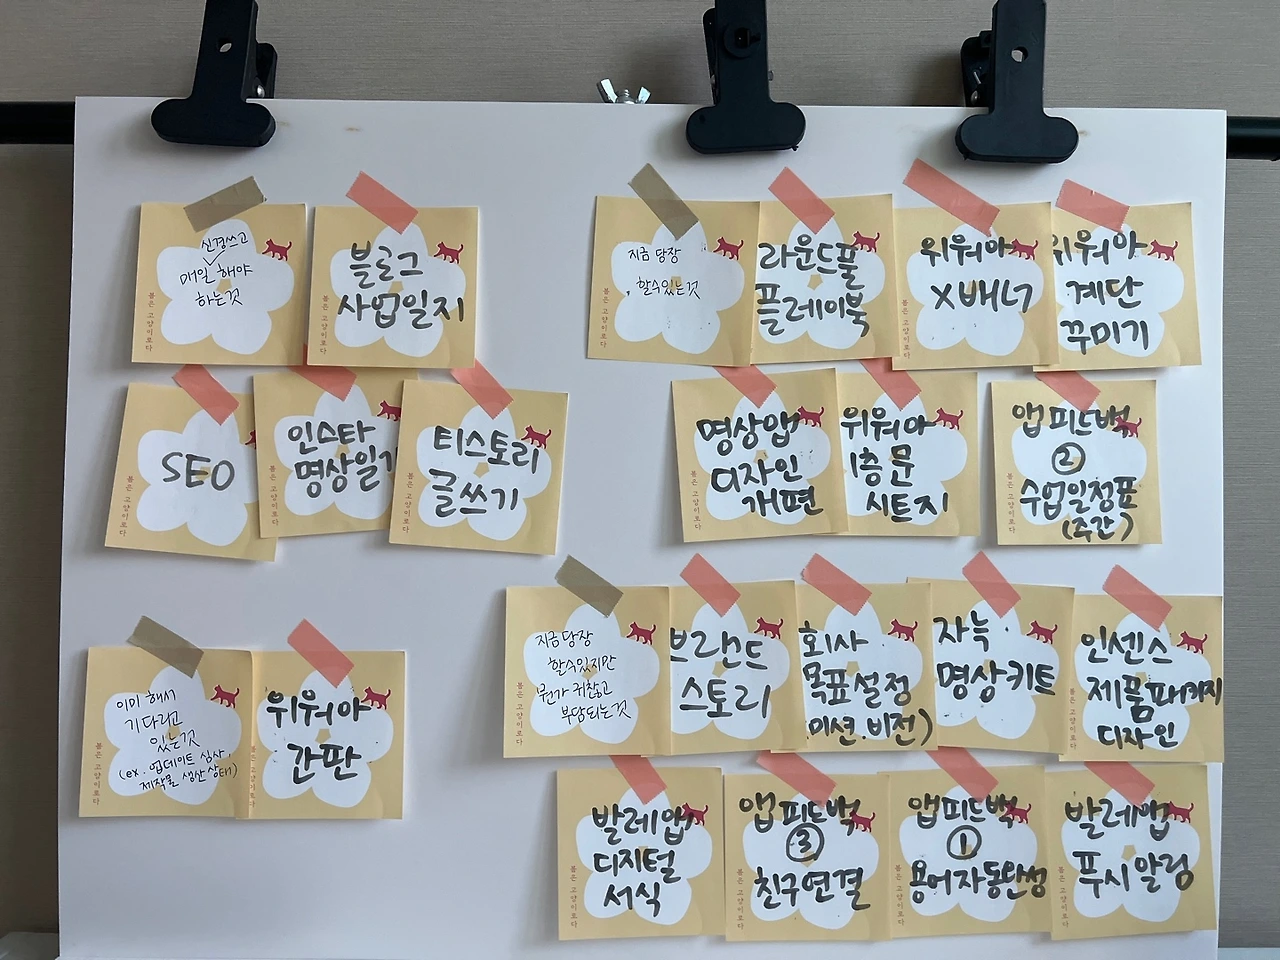 신경쓰고
매일 해야
하는것
봄은 고양이로다
블로그
사업일지
봄은 고양이로다
SEO
봄은 고양이로다
인스타
명상일기
봄은 고양이로다
티스토리
글쓰기
봄은 고양이로다
이미 해서
기다리고
있는것
(ex. 업데이트 심사,
제작물 생산 상태)
봄은 고양이로다
위워아
간판
봄은 고양이로다
지금 당장
할수있는것
봄은 고양이로다
라운드풀
플레이북
위워아
X배너
봄은 고양이로다
위워아
계단
꾸미기
명상앱
디자인
개편
봄은 고양이로다
위워아
1층 문
시트지
앱 피드백
②
수업일정표
(주간)
봄은 고양이로다
지금 당장
할수있지만
뭔가 귀찮고
부담되는것
봄은 고양이로다
브랜드
스토리
회사
목표설정
(미션.비전)
자늑
명상키트
인센스
제품패키지
디자인
봄은 고양이로다
발레앱
디지털
서식
봄은 고양이로다
앱 피드백
③
친구연결
봄은 고양이로다
앱 피드백
①
용어자동완성
봄은 고양이로다
발레앱
푸시 알림
봄은 고양이로다